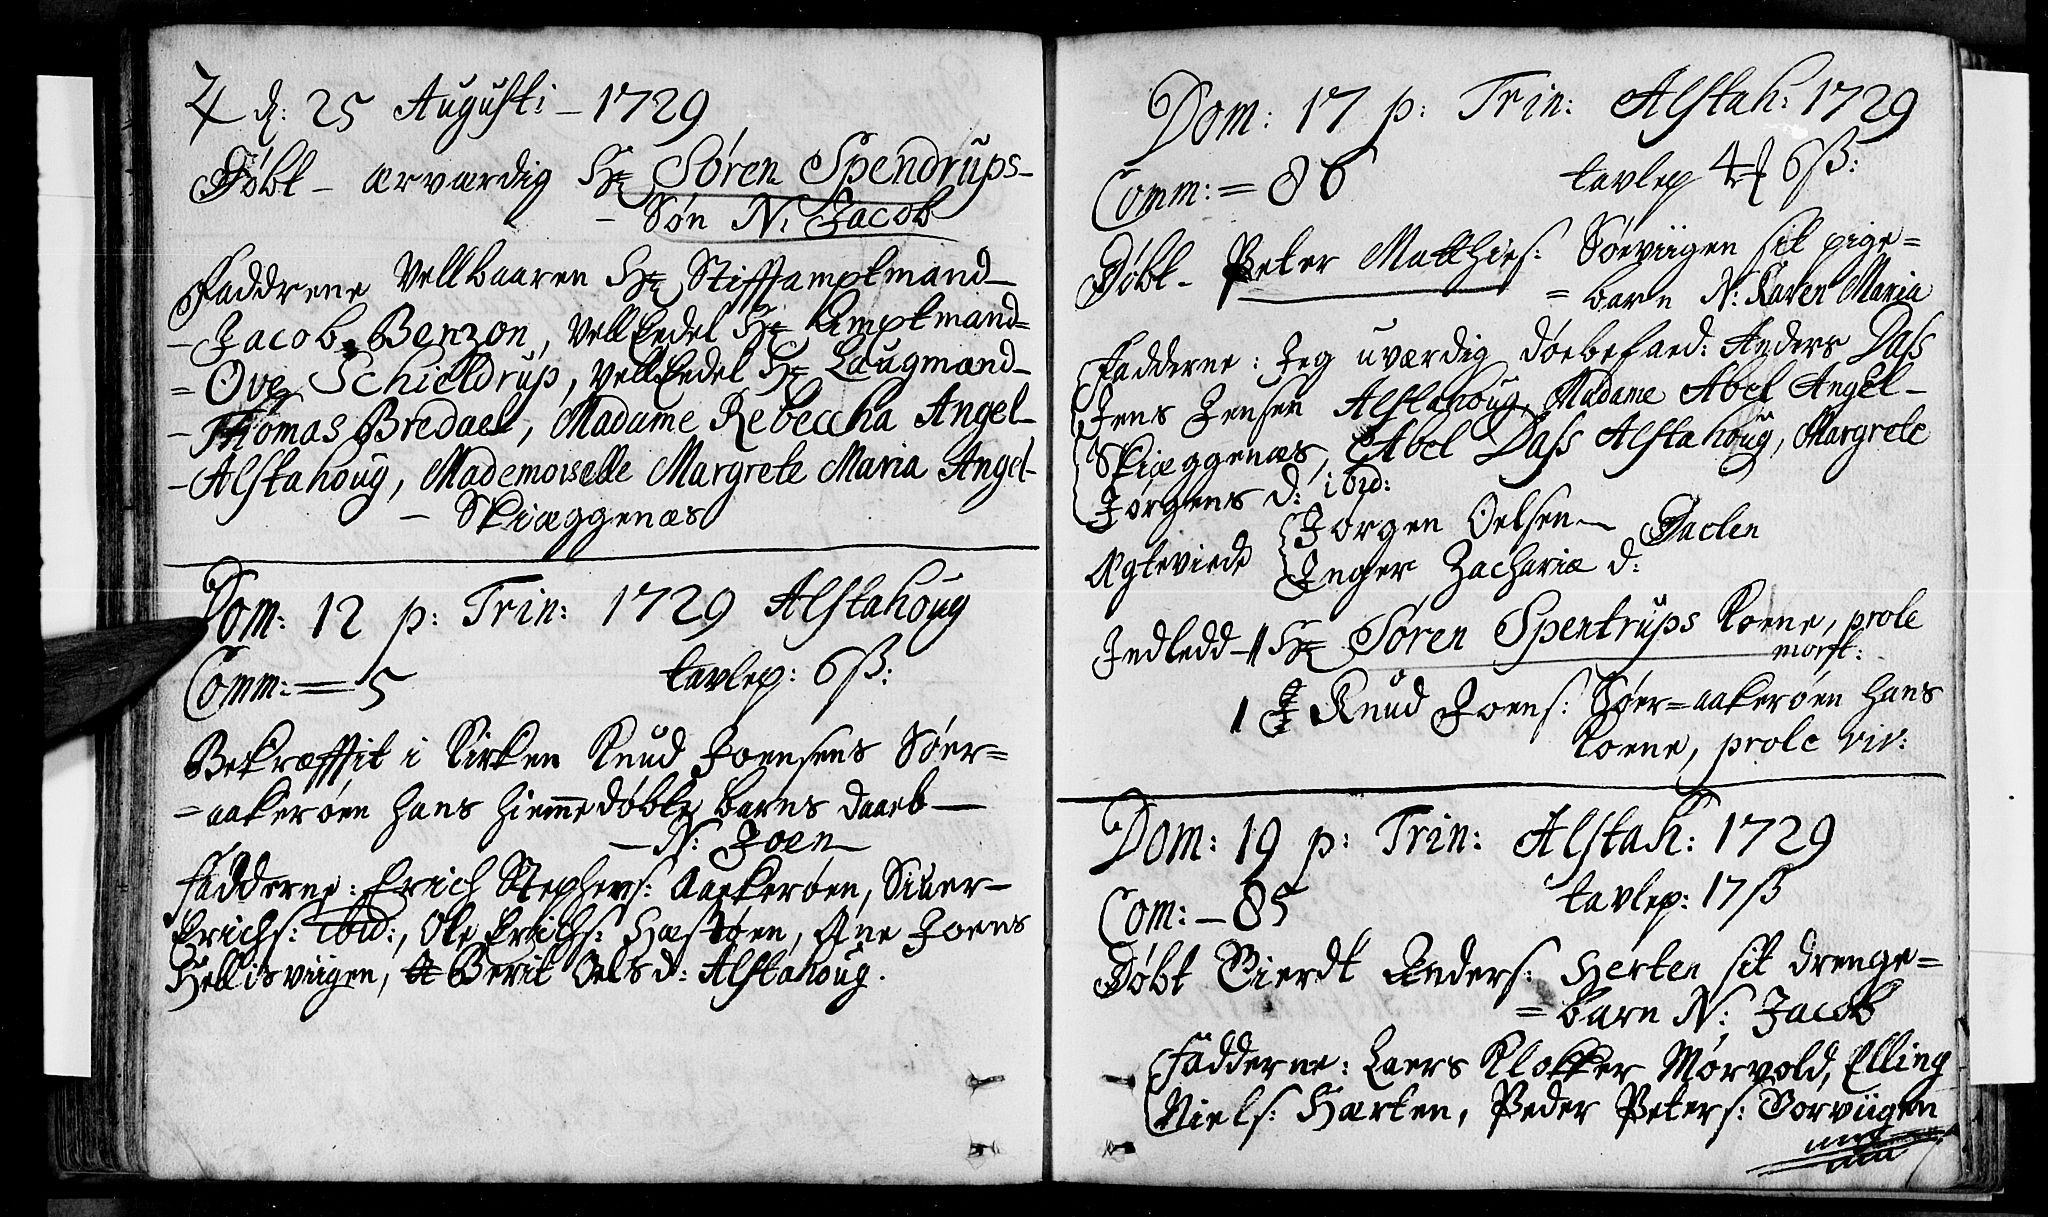 ♃ d: 25 Augusti – 1729
Døbt – ærværdig Hr Søren Spendrups –
– Søn N: Jacob
Faddrene Vellbaaren Hr Stifftamptmand –
– Jacob Benzon, VellEedel Hr Amptmand =
= Ove Schieldrup, VellEedel Hr Laugmand –
– Thomas Bredael, Madame Rebeccha Angel –
– Alstahoug, Mademoiselle Margrete Maria Angel –
– Skiæggenæs
Dom: 12 p: Trin: 1729 Alstahoug
Comm: = 5 tavlep: 6 ß:
Bekræfftit i Kirken Knud Joensens Søer =
= aakerøen hans hiemmedøbte barns daab –
– N: Joen –
Fadderne: Erich Stephens: Aakerøen, Siuer –
Erichs: ibid:, Ole Erichs: Hæstøen, Ane Joens
Hellisviigen, Berit Oelsd: Alstahoug.
Dom: 17 p: Trin: Alstah: 1729
Comm: = 86 tavlep 4 6 ß:
Døbt – Peter Matthies: Søeviigen sit pige =
= barn N: Karen Maria
Fadderne: Jeg uværdig Anders Dass
Jens Jensen Alstahoug, Madame Abel Angel –
Skiæggenæs, Abel Dass Alstahoug, Margrete
Jørgens d: ibid:
Ægteviede Jørgen Oelsen –
Inger Zachariæ d:
Indledd – 1 Hr Søren Spentrups Koene, prole
mort:
1 Knud Joens: Søer = aakerøen hans
Koene, prole viv:
Dom: 19 p: Trin: Alstah: 1729
Com: – 85 tavlep: 17 ß
Døbt Sierdt Anders: Herten sit drenge =
= barn N: Jacob
Fadderne: Laers Klokker Mørvold, Elling
Niels: Hærten, Peder Peters: Torviigen